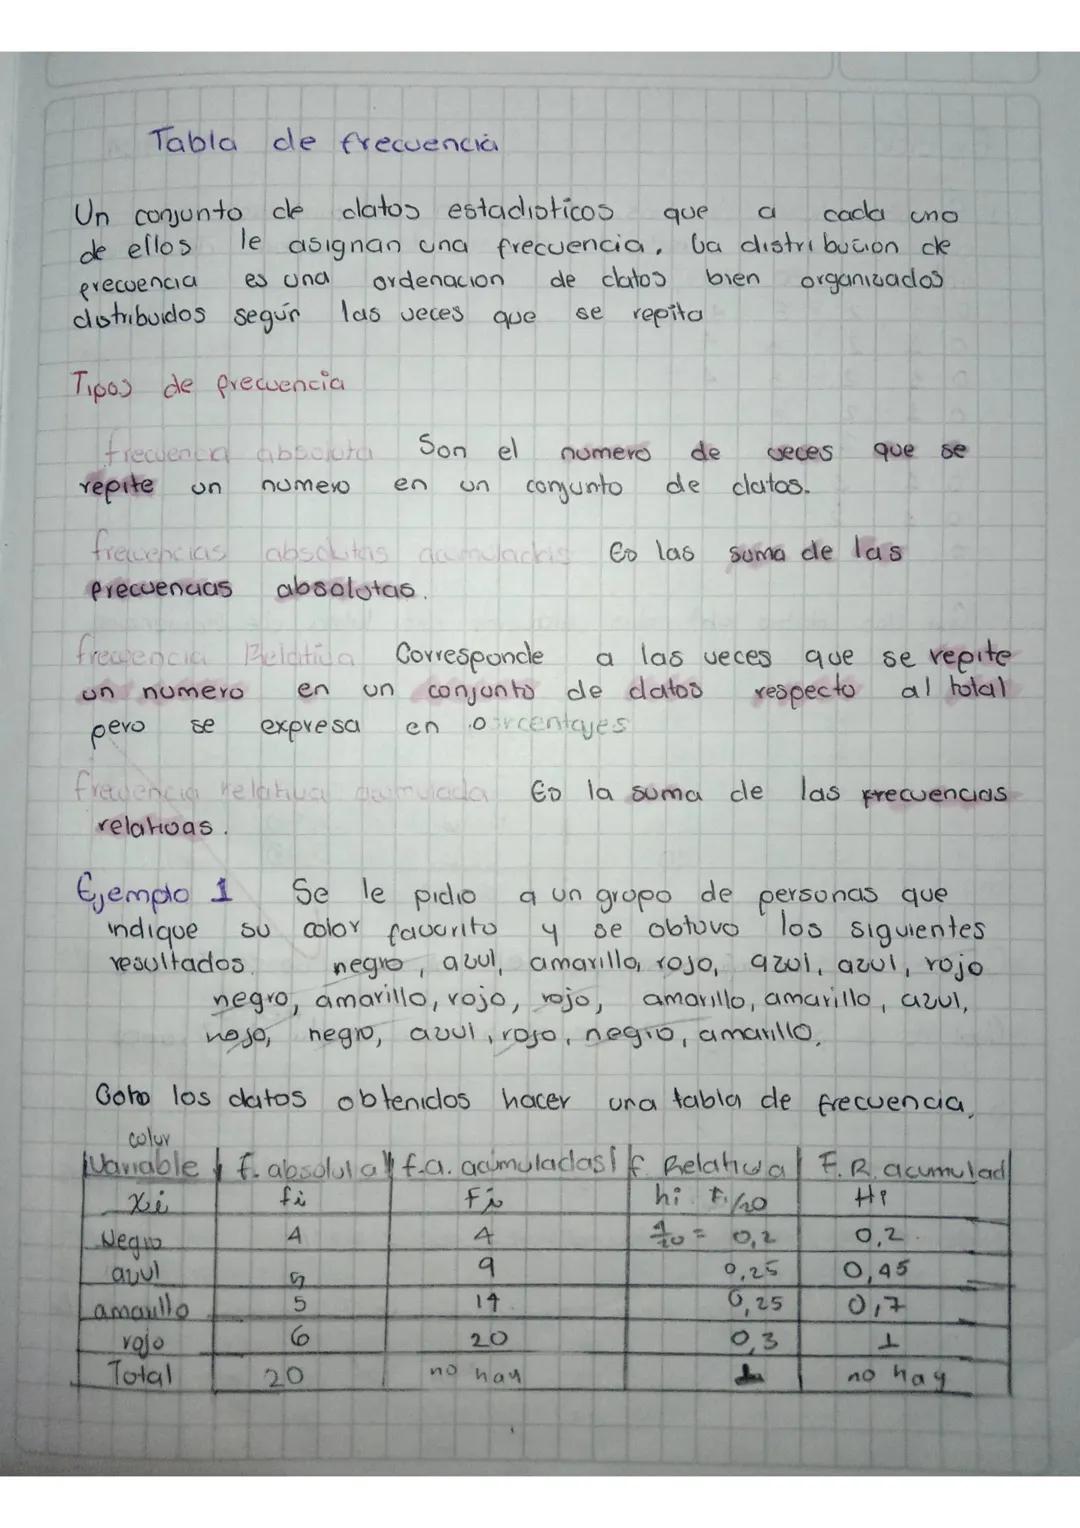 Tabla de frecuencia
Un conjunto de datos estadisticos que a cada uno
de ellos le asignan una frecuencia. La distribucion de
frecuencia es una ordenacion de datos bien organizados
distribuidos según las veces que se repita
Tipos de frecuencia
frecuencia absoluta Son el numero de veces que se
repite un numero en un conjunto de datos.
frecuencias absolutas acumuladas Es las suma de las
frecuencias absolutas.
frecuencia Relativa Corresponde a las veces que se repite
un numero en un conjunto de datos respecto al total
pero se expresa en porcentajes
frecuencia relativa acumulada Es la suma de las frecuencias
relativas.
Ejemplo 1 Se le pidio a un grupo de personas que
indique su color favorito y se obtuvo los siguientes
resultados. negro, azul, amarillo, rojo, azul, azul, rojo
negro, amarillo, rojo, rojo, amarillo, amarillo, azul,
rojo, negro, azul, rojo, negro, amarillo.
los datos obtenidos hacer una tabla de frecuencia.
color
Variable f. absoluta f.a. acumuladas f. Relativa F.R. acumulad
xi fi Fi hi Fi/20 Hi
Negro 4 4 4/20 = 0,2 0,2
azul 5 9 0,25 0,45
amarillo 5 14 0,25 0,7
rojo 6 20 0,3 1
Total 20 no hay 1 no hay